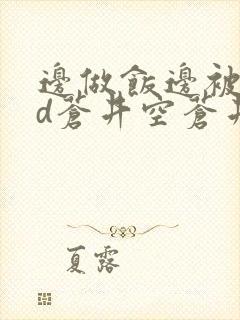 邊做飯邊被
d蒼井空蒼井
夏露